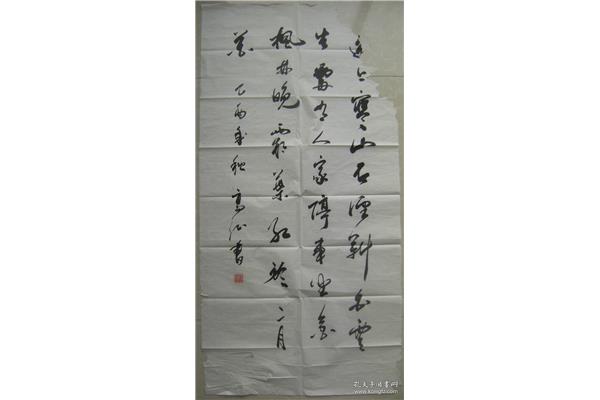 遠上寒山石徑斜白雲
生處有人家停車坐愛
楓林晚霜葉紅於二月
花 乙酉年秋 高書
孔夫子旧书网
www.kongfz.com